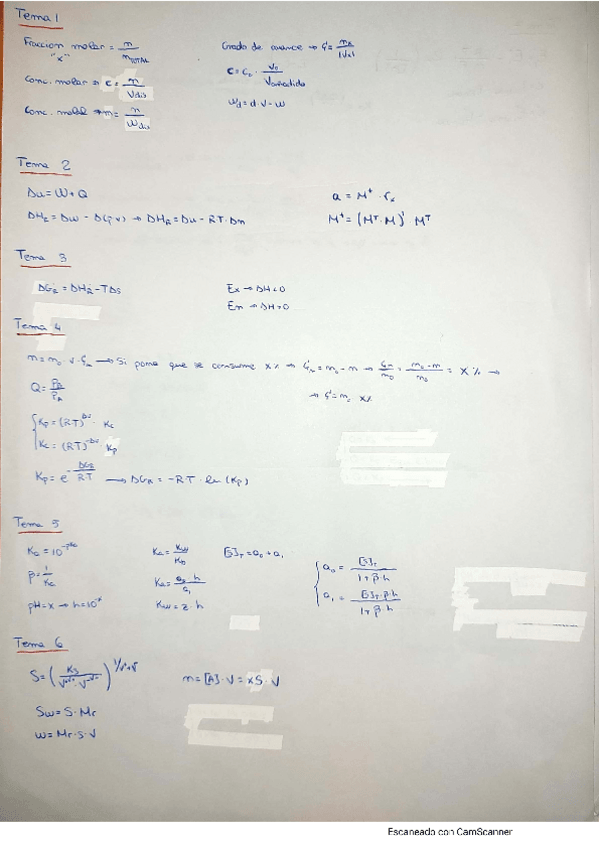 Tema 1
Fraccion molar = n / nTOTAL
"x"
Grado de avance → ξ = nx / |νx|
Conc. molar → c = n / Vdis
c = c₀ · V₀ / Vañadido
Conc. molal → m = n / Wdis
Wd = d · V - W
Tema 2
Δu = W + Q
a = M⁺ · rx
ΔHR = Δu - Δ(p·v) → ΔHR = Δu - RT · Δn
M⁺ = (Mᵀ · M)⁻¹ Mᵀ
Tema 3
ΔGR = ΔHR - TΔS
Ex → ΔH<0
En → ΔH>0
Tema 4
n = n₀ · ν · ξ → Si pone que se consume x% → ξ = n₀ - n → ξ/n₀ = (n₀ - n)/n₀ = x% →
→ ξ = n₀ x%
Q = PB / PA
Kp = (RT)^Δν · Kc
Kc = (RT)^-Δν · Kp
Kp = e^(-ΔGR/RT) → ΔGR = -RT · ln(Kp)
Tema 5
Ka = 10^-pKa
Ka = Kw / Kb
[S]T = a₀ + a₁
a₀ = [S]T / (1+β·h)
β = 1 / Ka
Ka = a₀ · h / a₁
a₁ = [S]T · β · h / (1+β·h)
pH = x → h = 10^-x
Kw = z · h
Tema 6
n = [A] · V = xS · V
Sw = S · Mr
w = Mr · S · V
Escaneado con CamScanner